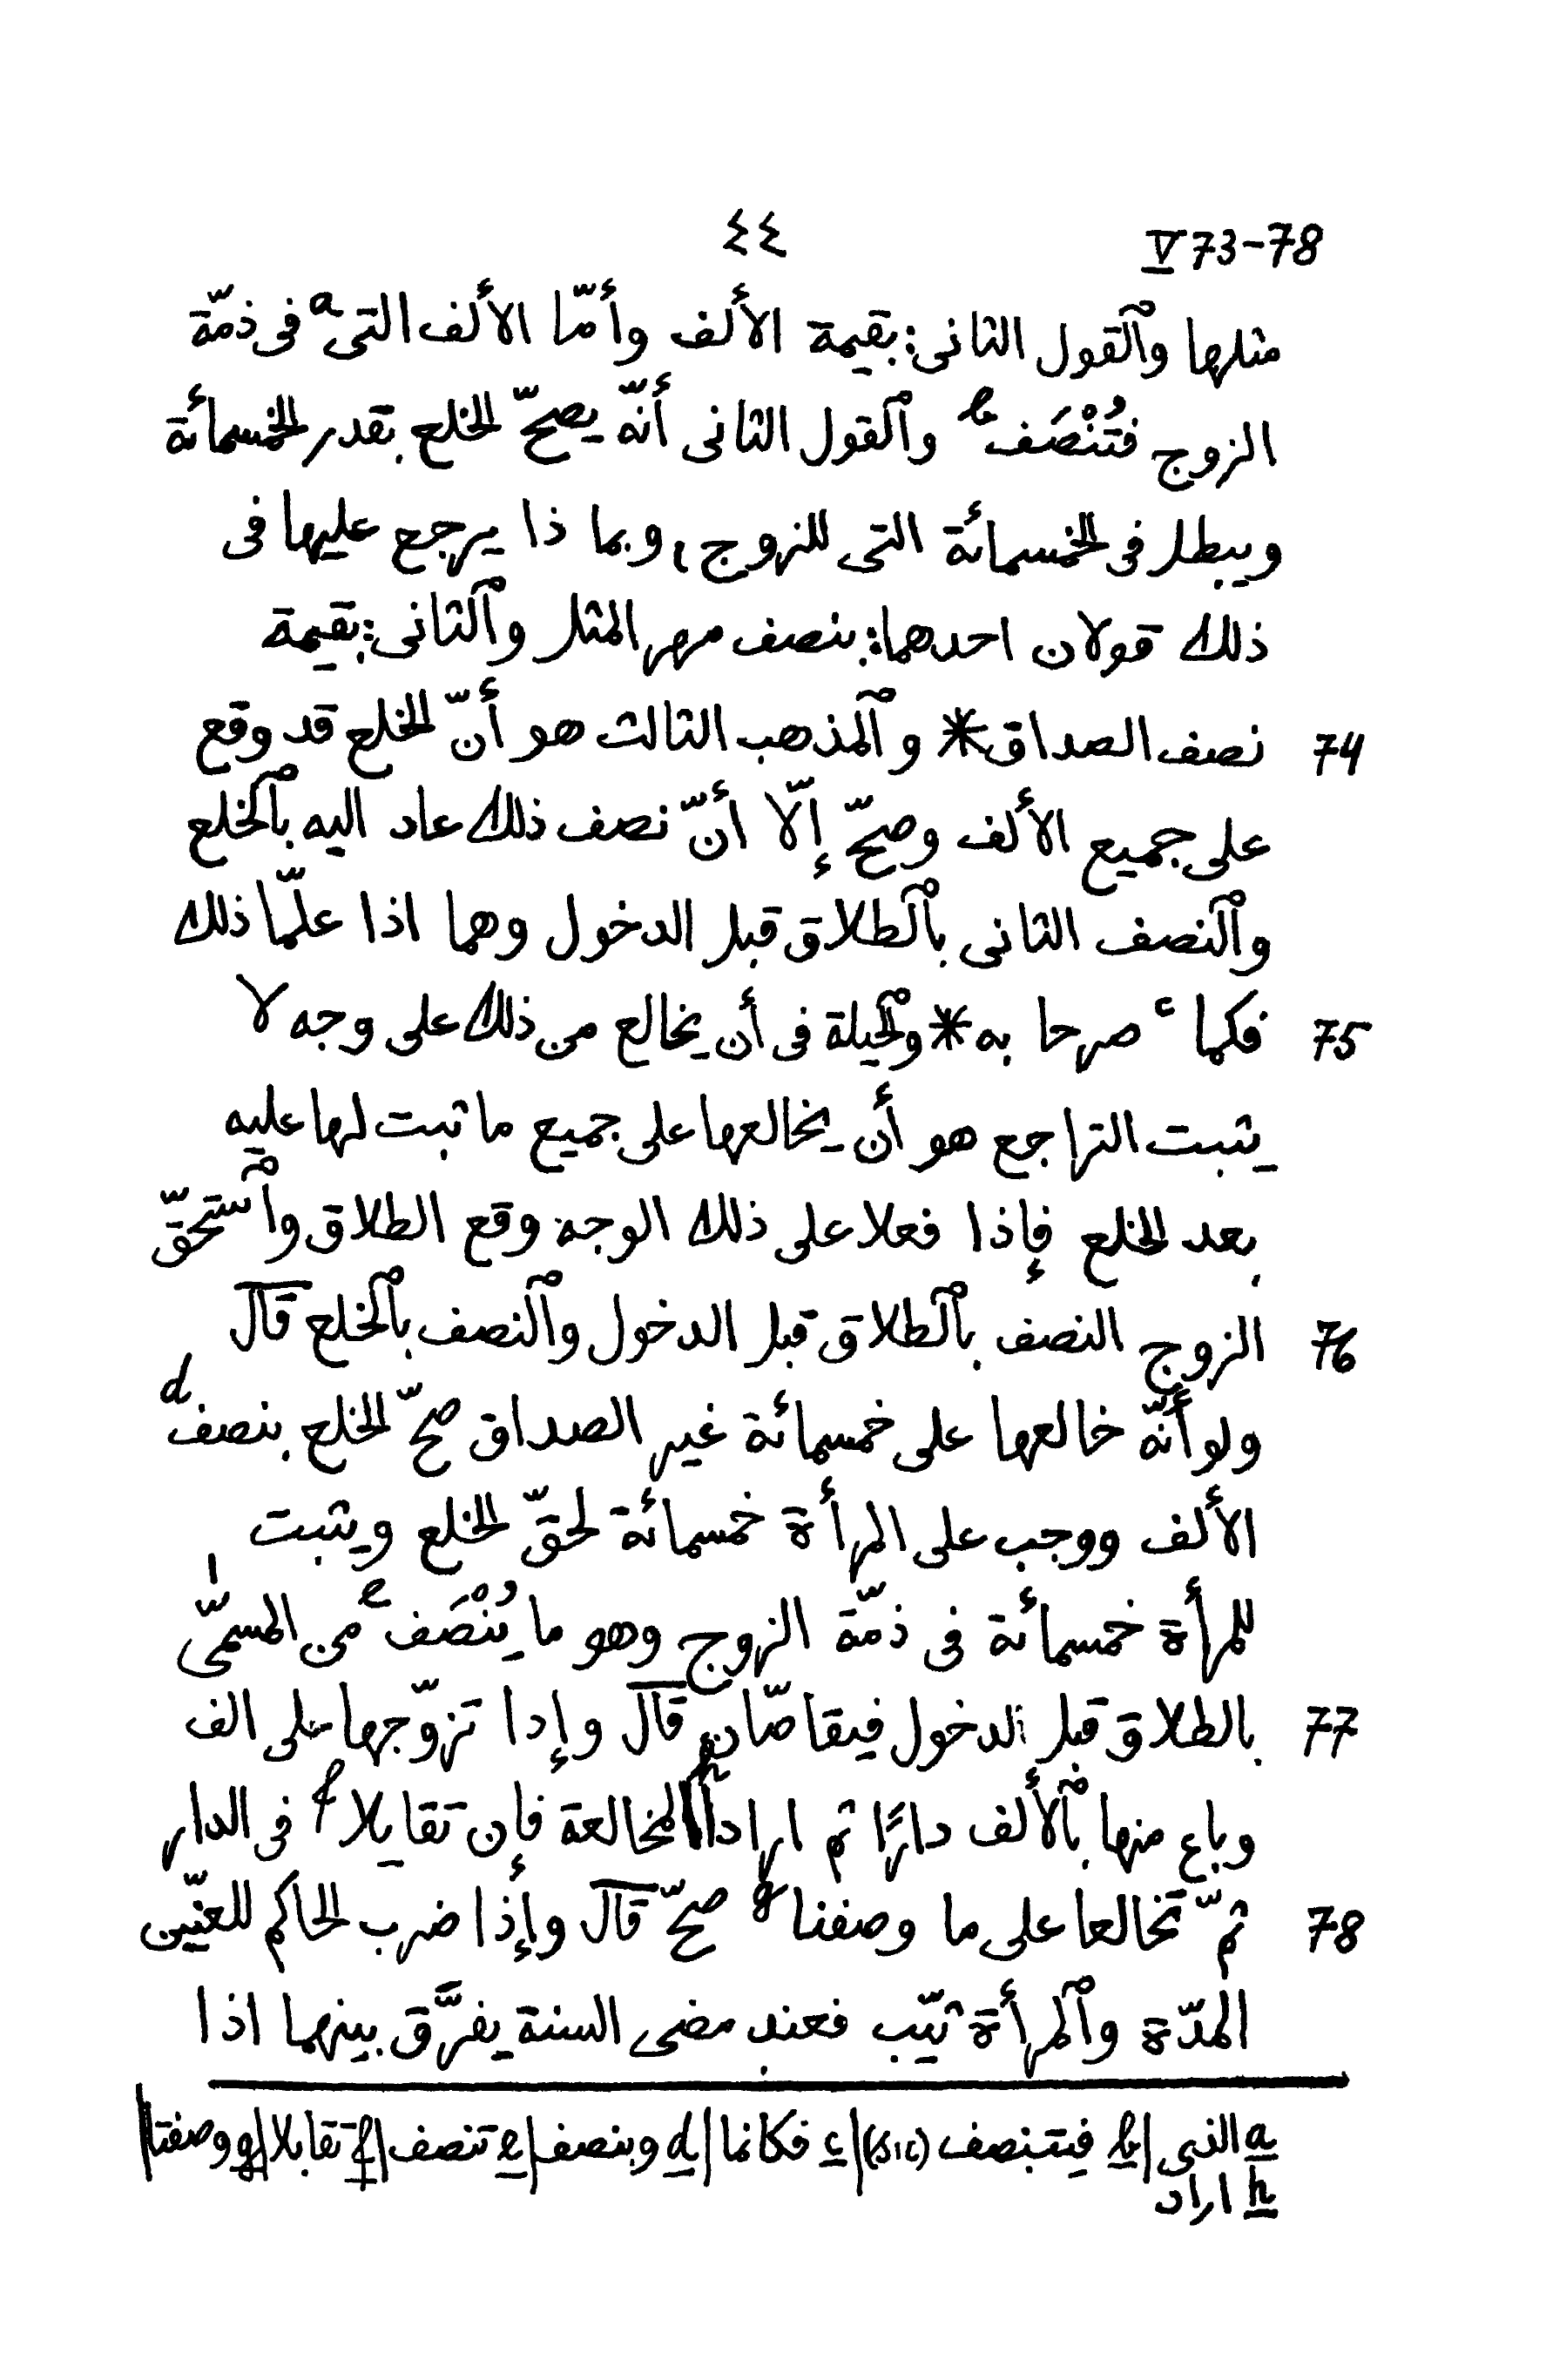 ٤٤ V 73-78
مثلها وٱلقول الثانى: بقيمة الألف وأمّا الألف التى a فى ذمّة
الزوج فتُنْصَف b وٱلقول الثانى أنّه يصحّ الخلع بقدر الخمسمائة
ويبطل فى الخمسمائة التى للزوج، وبما ذا يرجع عليها فى
ذلك قولان احدهما: بنصف مهر المثل وٱلثانى: بقيمة
74 نصف الصداق * وٱلمذهب الثالث هو أنّ الخلع قد وقع
على جميع الألف وصحّ إلّا أنّ نصف ذلك عاد اليه بٱلخلع
وٱلنصف الثانى بٱلطلاق قبل الدخول وهما اذا علّما ذلك
75 فكما c صرحا به * وٱلحيلة فى أن يخالع من ذلك على وجه لا
يثبت التراجع هو أن يخالعها على جميع ما ثبت لها عليه
بعد الخلع فإذا فعلا على ذلك الوجه وقع الطلاق وٱستحقّ
76 الزوج النصف بٱلطلاق قبل الدخول وٱلنصف بٱلخلع قال
ولو أنّه خالعها على خمسمائة غير الصداق صحّ الخلع بنصف d
الألف ووجب على المرأة خمسمائة لحقّ الخلع ويثبت
للمرأة خمسمائة فى ذمّة الزوج وهو ما يُنْصَف e من المسمّى
77 بالطلاق قبل الدخول فيقاصّان قال وإذا تزوّجها على الف
وباع منها بٱلألف دارًا ثم ارادا h المخالعة فإن تقايلا f فى الدار
78 ثمّ تخالعا على ما وصفنا g صحّ قال وإذا ضرب الحاكم للعنّين
المدّة وٱلمرأة ثيّب فعند مضى السنة يفرَّق بينهما اذا
a الذى | b فيتنصف (sic) | c فكانما | d وبنصف | e تنصف | f تقابلا | g ووصفتا |
h اراد